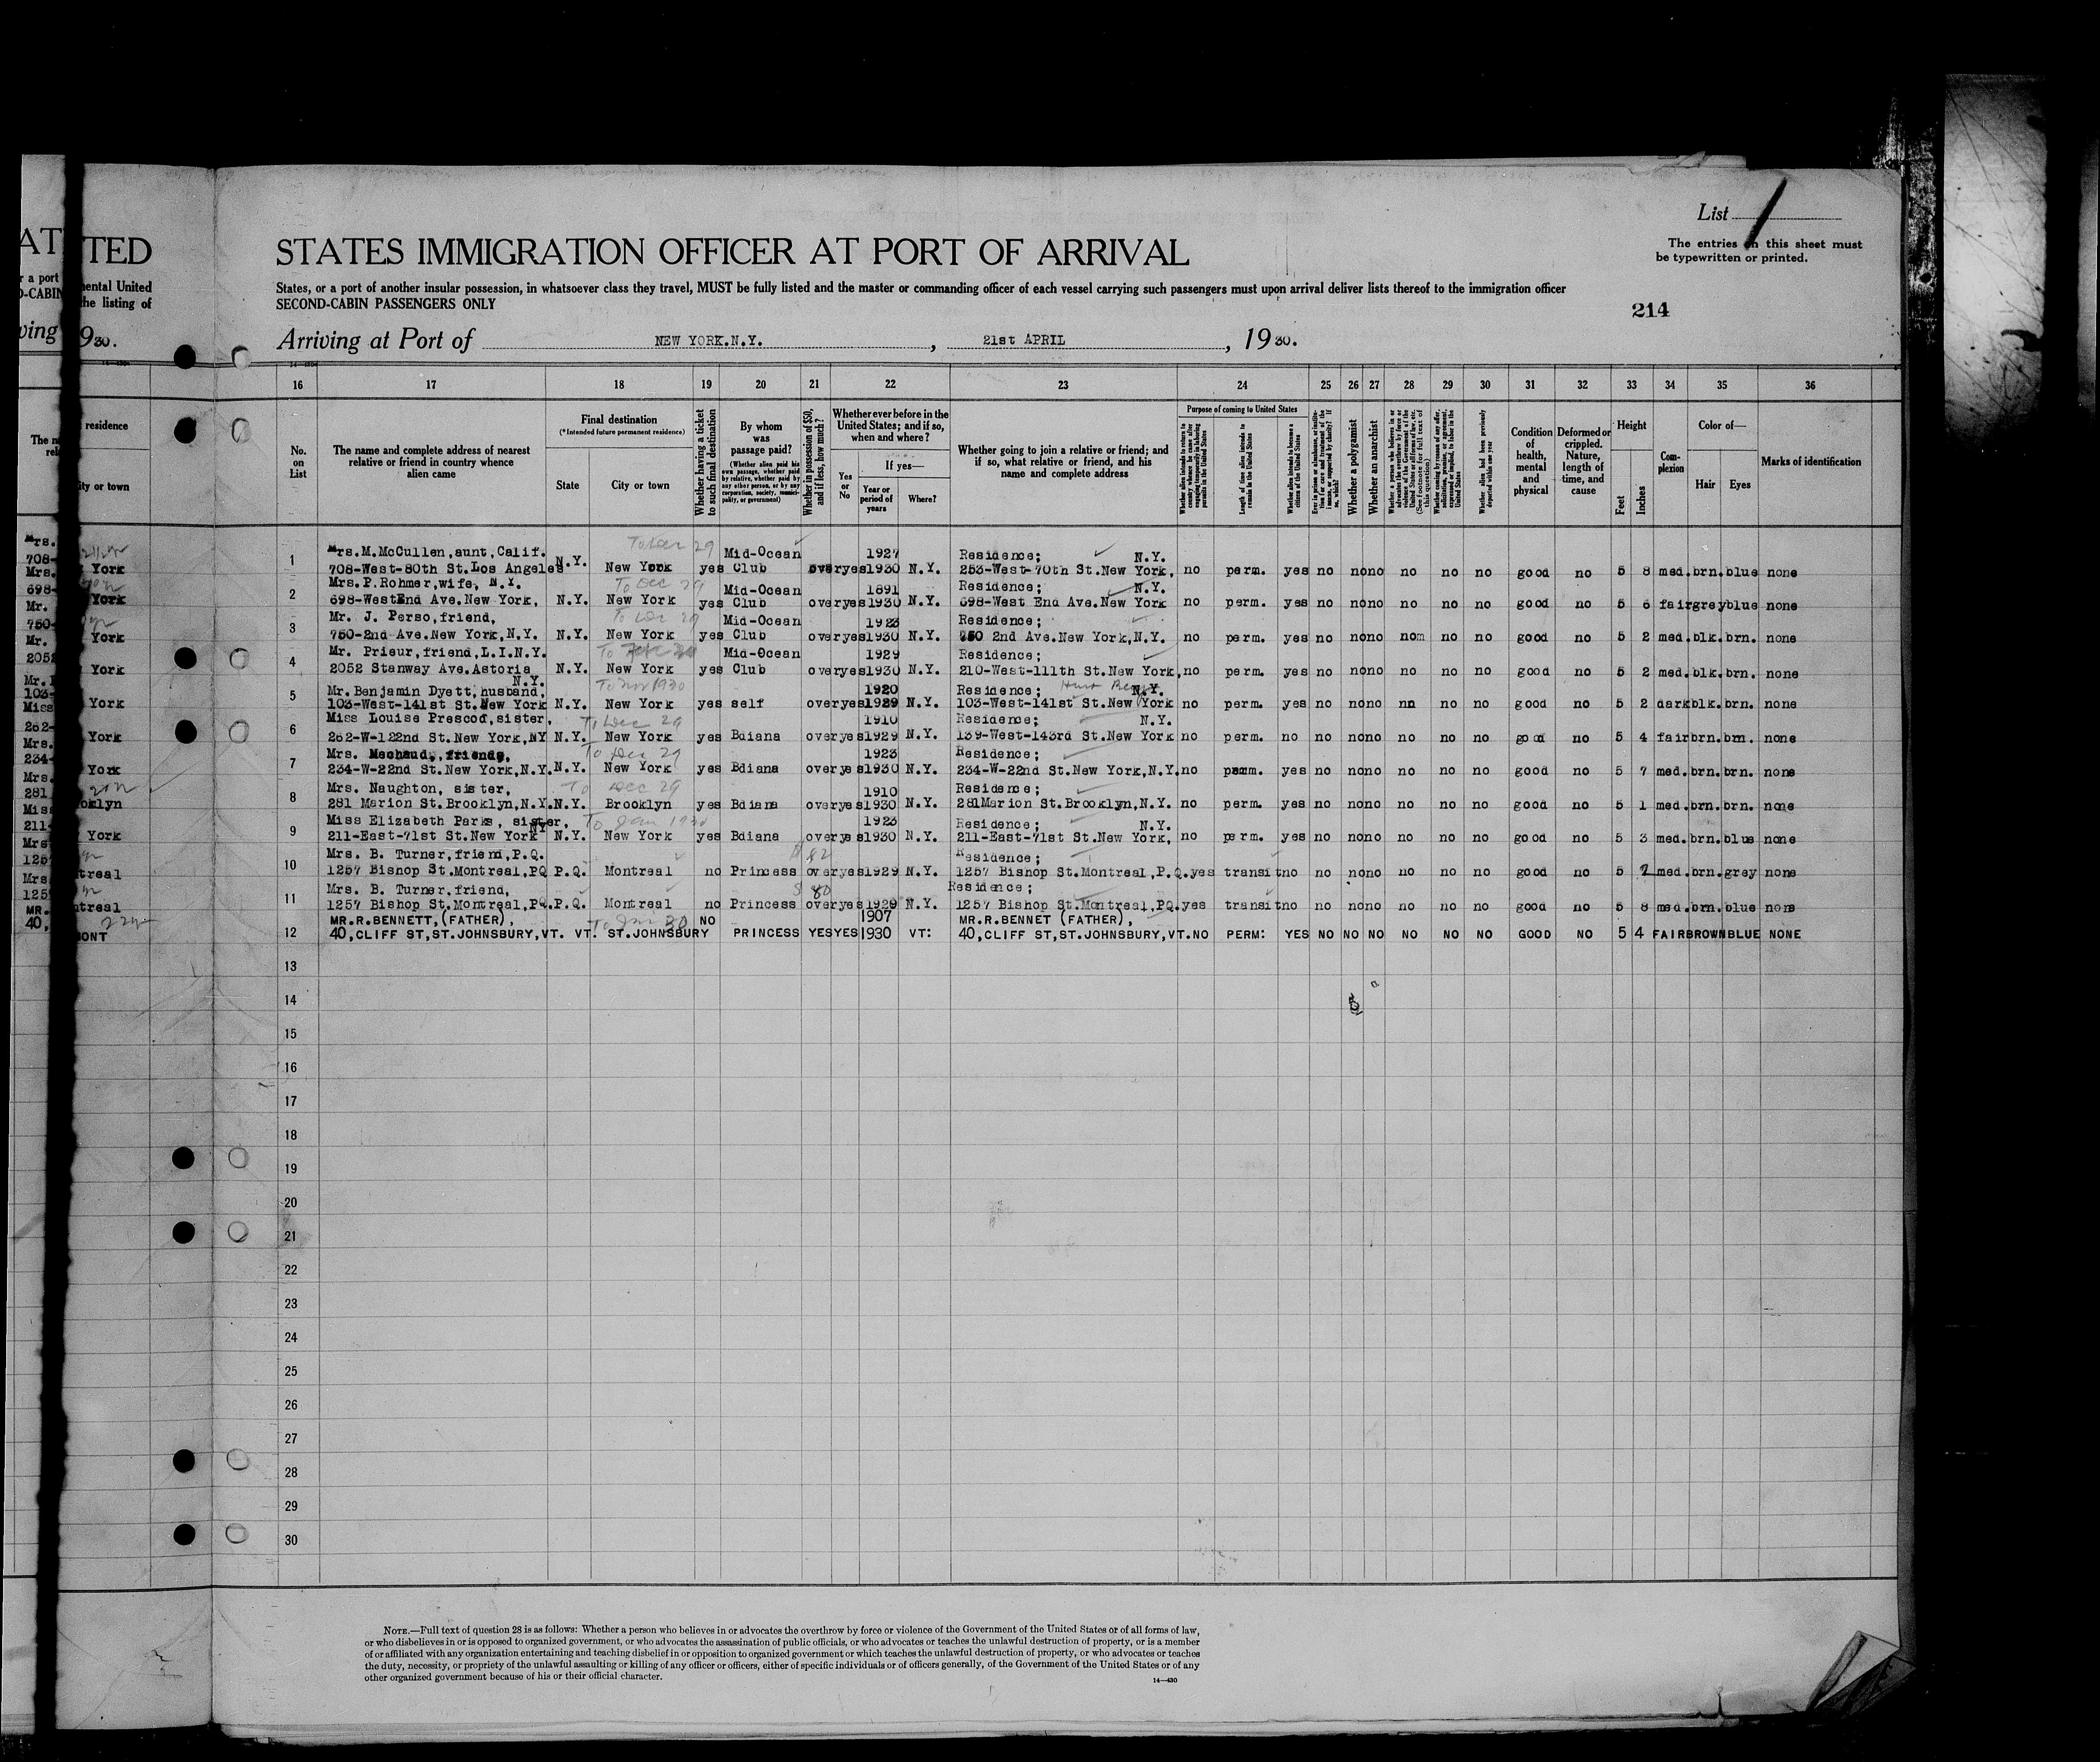 List
The entries on this sheet must
be typewritten or printed.
STATES IMMIGRATION OFFICER AT PORT OF ARRIVAL
States, or a port of another insular possession, in whatsoever class they travel, MUST be fully listed and the master or commanding officer of each vessel carrying such passengers must upon arrival deliver lists thereof to the immigration officer
SECOND-CABIN PASSENGERS ONLY
214
Arriving at Port of NEW YORK.N.Y. , 21st APRIL , 1930.
16 17 18 19 20 21 22 23 24 25 26 27 28 29 30 31 32 33 34 35 36
No. on List
The name and complete address of nearest relative or friend in country whence alien came
Final destination
(*Intended future permanent residence)
State City or town
Whether having a ticket to such final destination
By whom was passage paid?
(Whether alien paid his own passage, whether paid by relative, whether paid by any other person, or by any corporation, society, municipality, or government)
Whether in possession of $50, and if less, how much?
Whether ever before in the United States; and if so, when and where?
Yes or No
If yes—
Year or period of years
Where?
Whether going to join a relative or friend; and if so, what relative or friend, and his name and complete address
Purpose of coming to United States
Length of time alien intends to remain in the United States
Whether alien intends to become a citizen of the United States
Whether a polygamist
Whether an anarchist
Whether alien had been previously deported within one year
Condition of health, mental and physical
Deformed or crippled. Nature, length of time, and cause
Height
Feet Inches
Complexion
Color of—
Hair Eyes
Marks of identification
Mrs.M.McCullen,aunt,Calif. To Dec 29 Mid-Ocean 1927 Residence; N.Y.
1 708-West-80th St.Los Angeles N.Y. New York yes Club over yes 1930 N.Y. 253-West-70th St.New York, no perm. yes no no no no no no good no 5 8 med. brn. blue none
Mrs.P.Rohmer,wife, N.Y. To Dec 29 Mid-Ocean 1891 Residence; N.Y.
2 698-WestEnd Ave.New York, N.Y. New York yes Club over yes 1930 N.Y. 698-West End Ave.New York no perm. yes no no no no no no good no 5 6 fair grey blue none
Mr. J. Perso,friend, To Dec 29 Mid-Ocean 1923 Residence;
3 750-2nd Ave.New York,N.Y. N.Y. New York yes Club over yes 1930 N.Y. 750 2nd Ave.New York,N.Y. no perm. yes no no no nom no no good no 5 2 med. blk. brn. none
Mr. Prieur,friend,L.I.N.Y. Mid-Ocean 1929 Residence;
4 2052 Stanway Ave.Astoria N.Y. New York yes Club over yes 1930 N.Y. 210-West-111th St.New York, no perm. yes no no no no no no good no 5 2 med. blk. brn. none
N.Y.
Mr. Benjamin Dyett,husband, To Nov 1930 1920 Residence; N.Y.
5 103-West-141st St.New York N.Y. New York yes self over yes 1929 N.Y. 103-West-141st St.New York no perm. yes no no no nn no no good no 5 2 dark blk. brn. none
Miss Louise Prescod,sister, To Dec 29 1910 Residence; N.Y.
6 262-W-122nd St.New York,NY N.Y. New York yes Bdiana over yes 1929 N.Y. 139-West-143rd St.New York no perm. no no no no no no no good no 5 4 fair brn. brn. none
Mrs. Mechaud,,friends, To Dec 29 1923 Residence;
7 234-W-22nd St.New York,N.Y. N.Y. New York yes Bdiana over yes 1930 N.Y. 234-W-22nd St.New York,N.Y. no perm. yes no no no no no no good no 5 7 med. brn. brn. none
Mrs. Naughton, sister, To Dec 29 1910 Residence;
8 281 Marion St.Brooklyn,N.Y. N.Y. Brooklyn yes Bdiana over yes 1930 N.Y. 281Marion St.Brooklyn,N.Y. no perm. yes no no no no no no good no 5 1 med. brn. brn. none
Miss Elizabeth Parks, sister, To Jan 1930 1923 Residence; N.Y.
9 211-East-71st St.New York NY N.Y. New York yes Bdiana over yes 1930 N.Y. 211-East-71st St.New York, no perm. yes no no no no no no good no 5 3 med. brn. blue none
Mrs. B. Turner,friend,P.Q. Residence;
10 1257 Bishop St.Montreal,PQ P.Q. Montreal no Princess over yes 1929 N.Y. 1257 Bishop St.Montreal,P.Q. yes transit no no no no no no no good no 5 med. brn. grey none
Mrs. B. Turner,friend, 80 Residence;
11 1257 Bishop St.Montreal,PQ. P.Q. Montreal no Princess over yes 1929 N.Y. 1257 Bishop St.Montreal,PQ. yes transit no no no no no no no good no 5 8 med. brn. blue none
MR.R.BENNETT,(FATHER), NO 1907 MR.R.BENNET (FATHER),
12 40,CLIFF ST,ST.JOHNSBURY,VT. VT. ST.JOHNSBURY PRINCESS YES YES 1930 VT: 40,CLIFF ST,ST.JOHNSBURY,VT. NO PERM: YES NO NO NO NO NO NO GOOD NO 5 4 FAIR BROWN BLUE NONE
13
14
15
16
17
18
19
20
21
22
23
24
25
26
27
28
29
30
NOTE.—Full text of question 28 is as follows: Whether a person who believes in or advocates the overthrow by force or violence of the Government of the United States or of all forms of law,
or who disbelieves in or is opposed to organized government, or who advocates the assassination of public officials, or who advocates or teaches the unlawful destruction of property, or is a member
of or affiliated with any organization entertaining and teaching disbelief in or opposition to organized government or which teaches the unlawful destruction of property, or who advocates or teaches
the duty, necessity, or propriety of the unlawful assaulting or killing of any officer or officers, either of specific individuals or of officers generally, of the Government of the United States or of any
other organized government because of his or their official character.
14—430